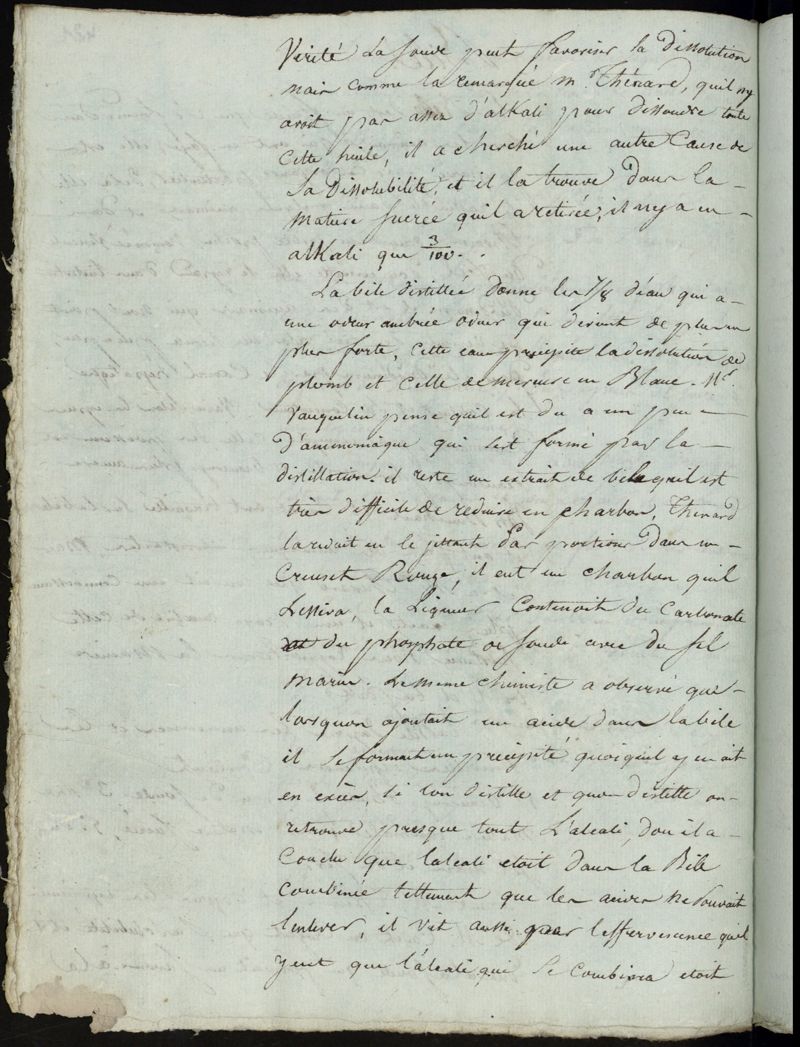 Verité La soude peut favoriser la dissolution
mais comme la remarqué mr. Thénard, quil ny
avoit pas assez d'alkali pour dissoudre toute
cette huile, il a cherché une autre Cause de
sa Dissolubilité, et il la trouve Dans la
matiere sucrée quil a retirée, il ny a en
alkali que 3/100.
La bile distillée donne les 7/8 d'eau qui a
une odeur ambrée odeur qui devient de plus en
plus forte, cette eau precipite la dissolution de
plomb et celle de mercure en Blanc. Mr.
Vauquelin pense quil est du a un peu
D'ammoniaque qui s'est formé par la
distillation. il reste un extrait de bile quil est
très difficile de reduire en charbon, Thenard
la reduit en le jettant Par portions Dans un
Creuset Rouge, il eut un charbon quil
Lessiva, la Liqueur Contenoit du Carbonate
du phosphate de soude avec du sel
marin. Le meme chimiste a observé que
lorsquon ajoutait un acide dans la bile
il se formait un precipité quoiquil y en ait
en excès, si lon distille et quon distille on
retrouve presque tout L'alcali, dou il a
Conclu que lalcali etoit dans la Bile
combinée tellement que les acides ne Pouvait
lenlever, il vit aussi par leffervescence quil
y eut que l'alcali qui se combina etoit